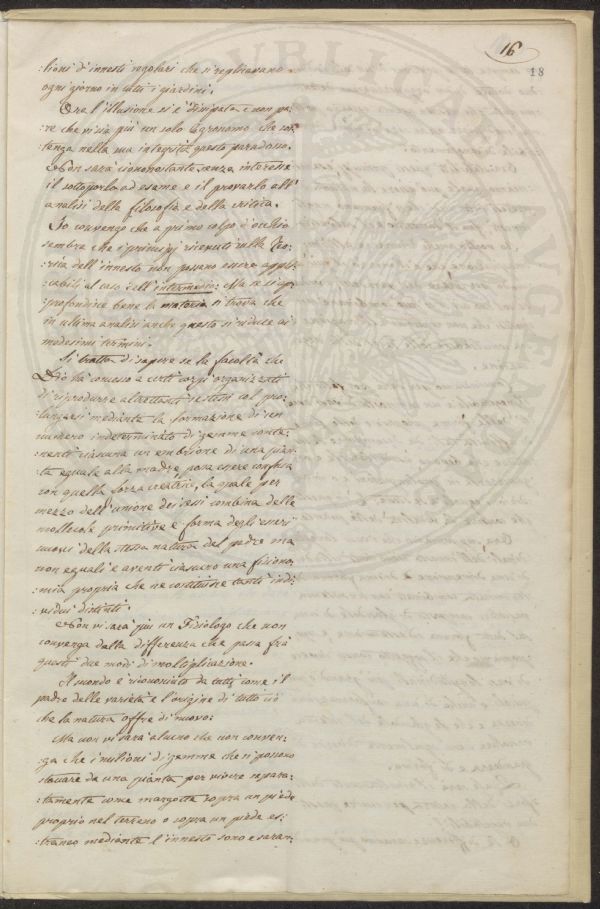 16
18
:lioni d'innesti regolari che si regliavano
ogni giorno in tutti i giardini.
Ora l'illusione si è dissipata e non pa:
re che vi sia più un solo Agronomo che sos:
tenga nella sua integrità questo paradosso.
Non sarà cionnonostante senza interesse
il sottoporlo ad esame e il provarlo all'
analisi della filosofia e della critica.
Io convengo che a primo colpo d'occhio
sembra che i principj ricevuti sulla Teo:
:ria dell'innesto non possano essere appli:
:cabili al caso dell'intermedio: Ma se si ap:
:profondisce bene la materia si trova che
in ultima analisi anche questo si riduce ai
medesimi termini.
Si tratta di sapere se la facoltà che
Dio ha concesso a certi corpi organizzati
di riprodurre altrettanti sestessi col pro:
lungarsi mediante la formazione di un
numero indeterminato di gemme conte:
:nenti ciascuna un embrione di una pian:
:ta eguale alla madre possa essere confusa
con quella forza creatrice, la quale per
mezzo dell'unione dei sessi combina delle
mollecole primitive e forma degli esseri
nuovi della stessa natura del padre ma
non eguali e aventi ciascuno una fisiono:
:mia propria che ne costituisce tanti indi:
:vidui distinti.
Non vi sarà più un Fisiologo che non
convenga della differenza che passa frà
questi due modi di moltiplicazione.
Il mondo è riconosciuto da tutti come il
padre delle varietà e l'origine di tutto ciò
che la natura offre di nuovo:
Ma non vi sarà alcuno che non conven:
:ga che i milioni di gemme che si possono
staccare da una pianta per vivere separa:
:tamente come margotta sopra un piede
proprio nel terreno o sopra un piede es:
:traneo mediante l'innesto sono e saran: